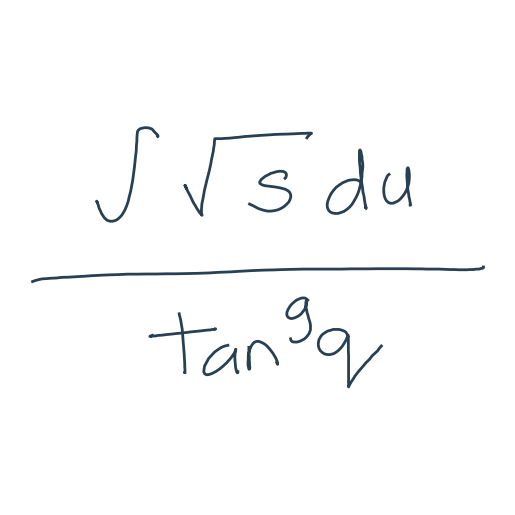 ∫ √s du
tan^9 q